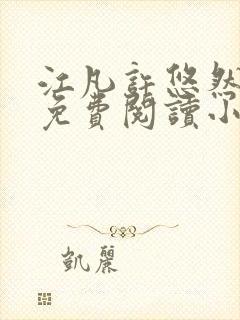 江凡許悠然
免費閱讀小
凱麗